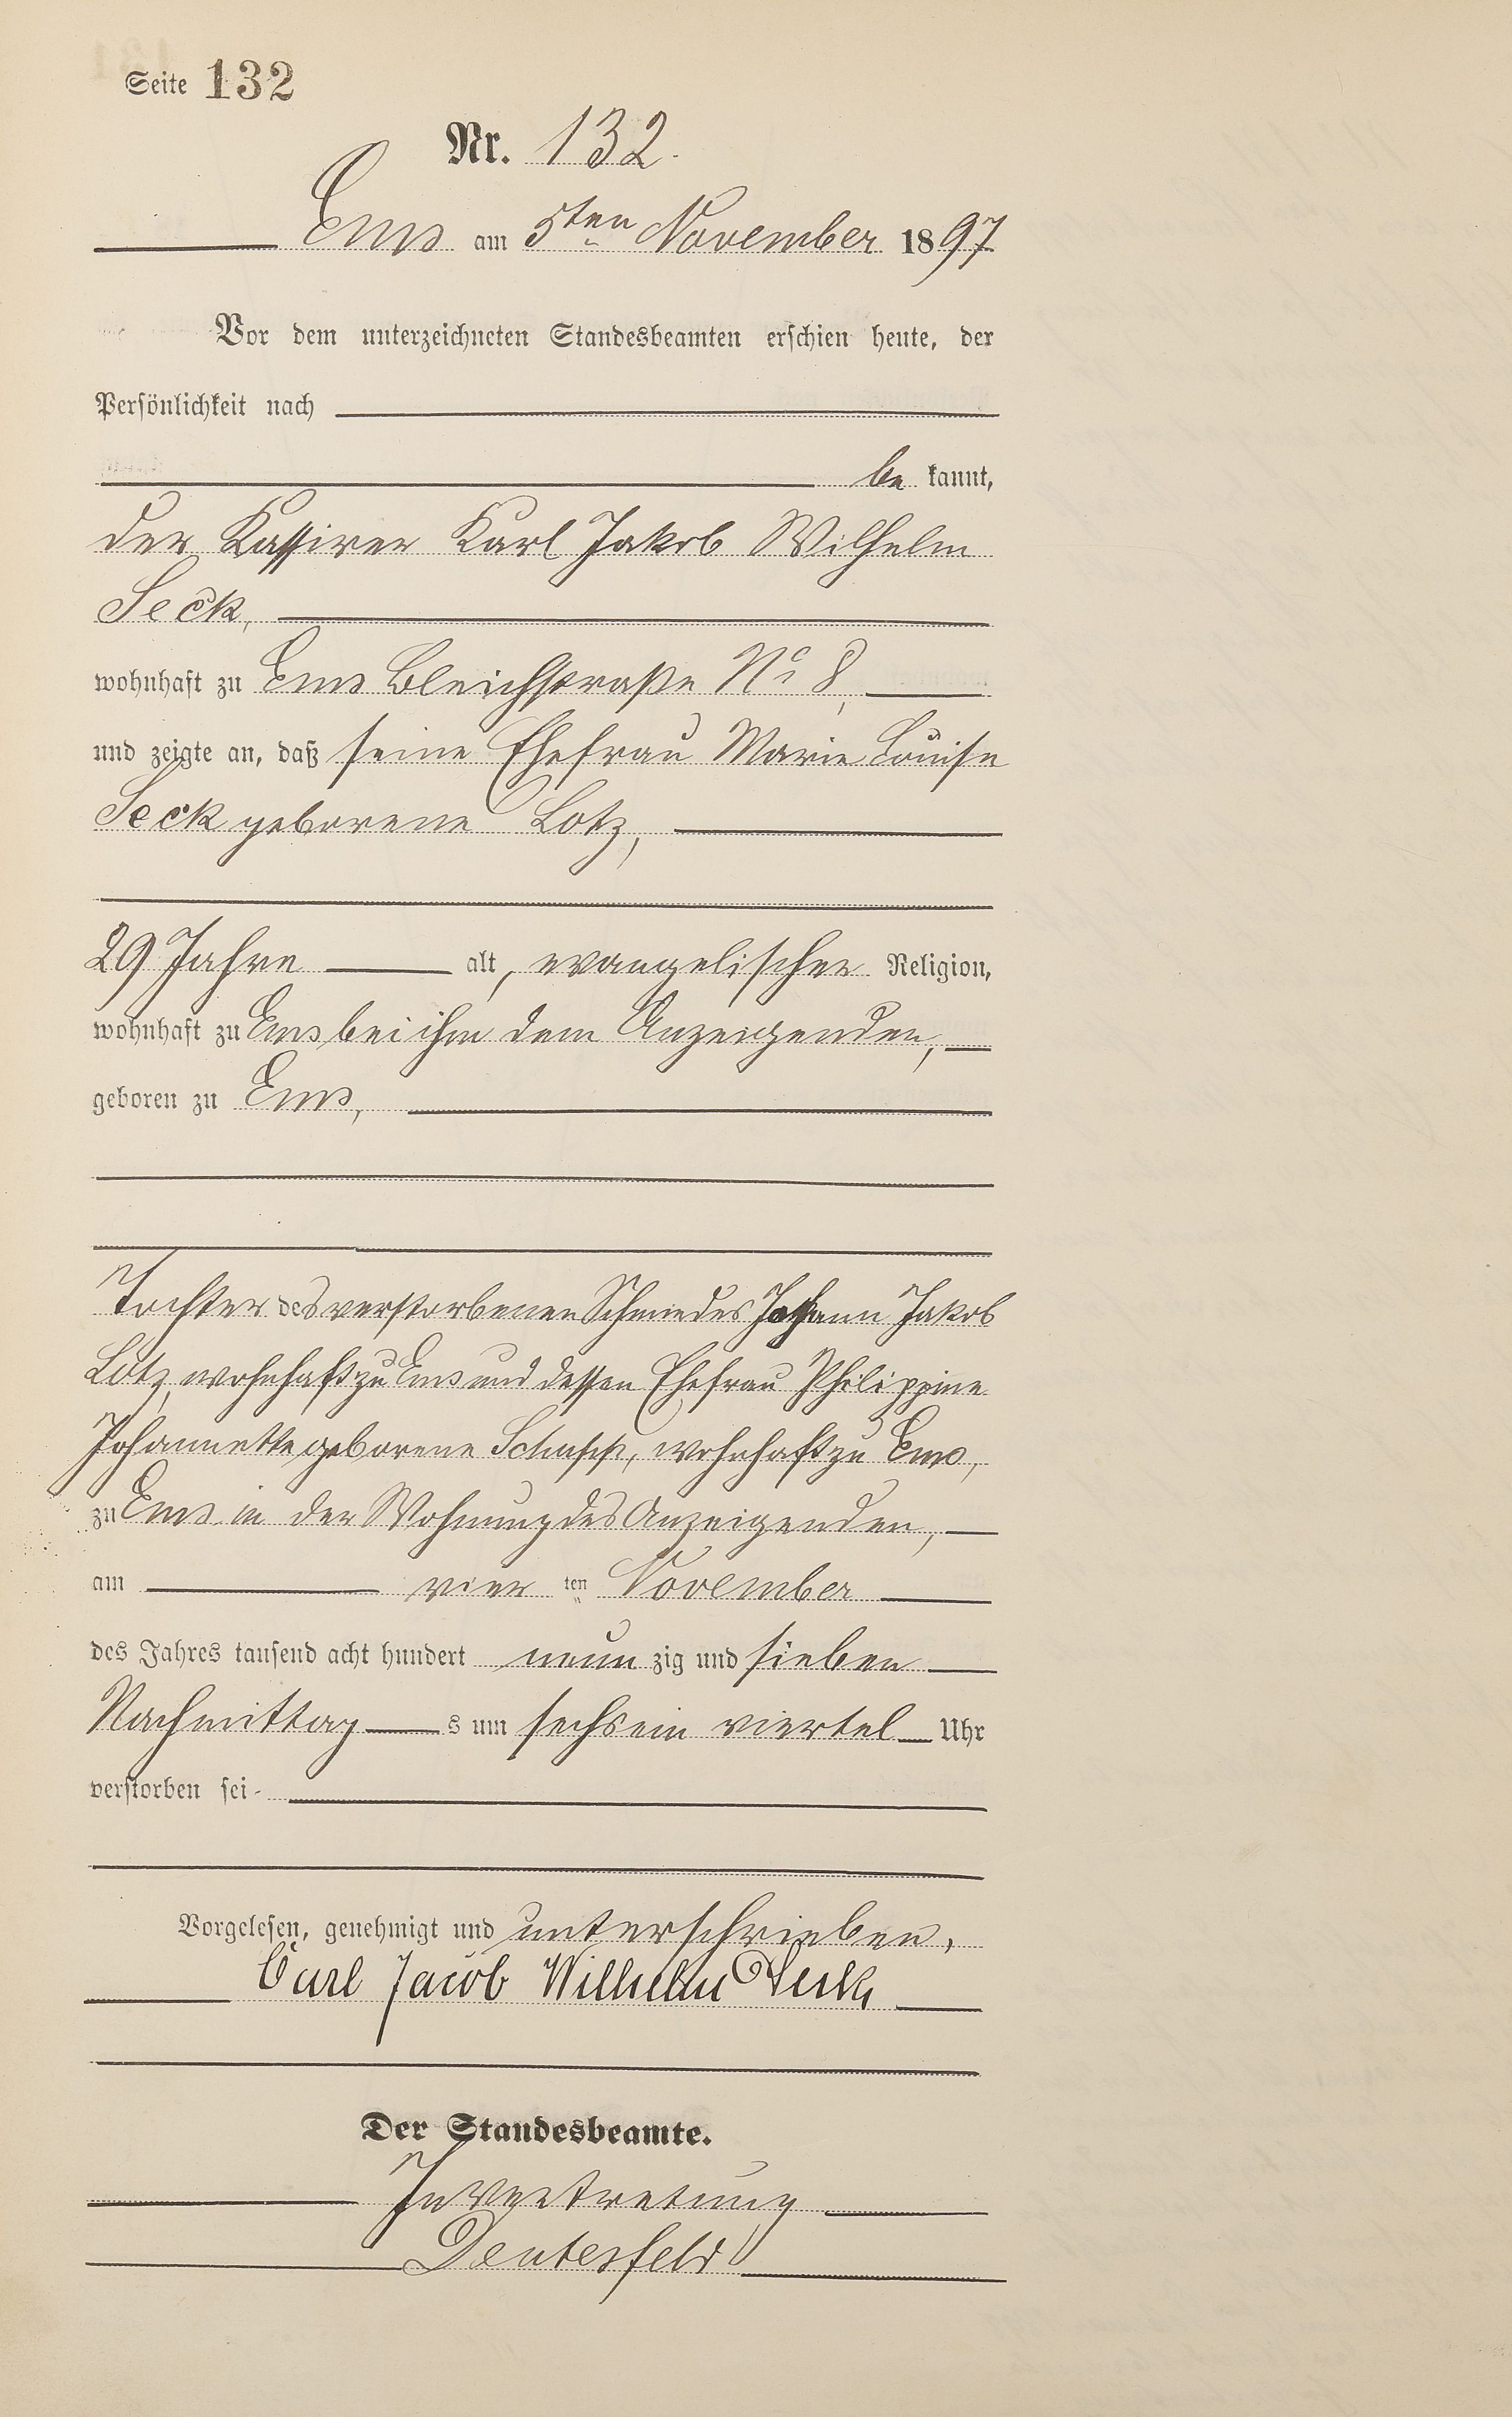 Seite 132
Nr. 132.
Ems am 5ten November 1897
Vor dem unterzeichneten Standesbeamten erschien heute, der
Persönlichkeit nach
be kannt,
der Kassirer Karl Jakob Wilhelm
Seck,
wohnhaft zu Ems Bleichstraße No 8,
und zeigte an, daß seine Ehefrau Marie Louise
Seck geborene Lotz,
29 Jahre alt, evangelischer Religion,
wohnhaft zu Ems bei ihm dem Anzeigenden,
geboren zu Ems,
Tochter des verstorbenen Schmiedes Johann Jakob
Lotz, wohnhaft zu Ems und dessen Ehefrau Philippine
Johannette geborene Schupp, wohnhaft zu Ems,
zu Ems in der Wohnung des Anzeigenden,
am vier ten November
des Jahres tausend acht hundert neun zig und sieben
Nachmittag s um sechs ein viertel Uhr
verstorben sei.
Vorgelesen, genehmigt und unterschrieben,
Carl Jacob Wilhelm Seck,
Der Standesbeamte.
In Vertretung
Deutesfeld